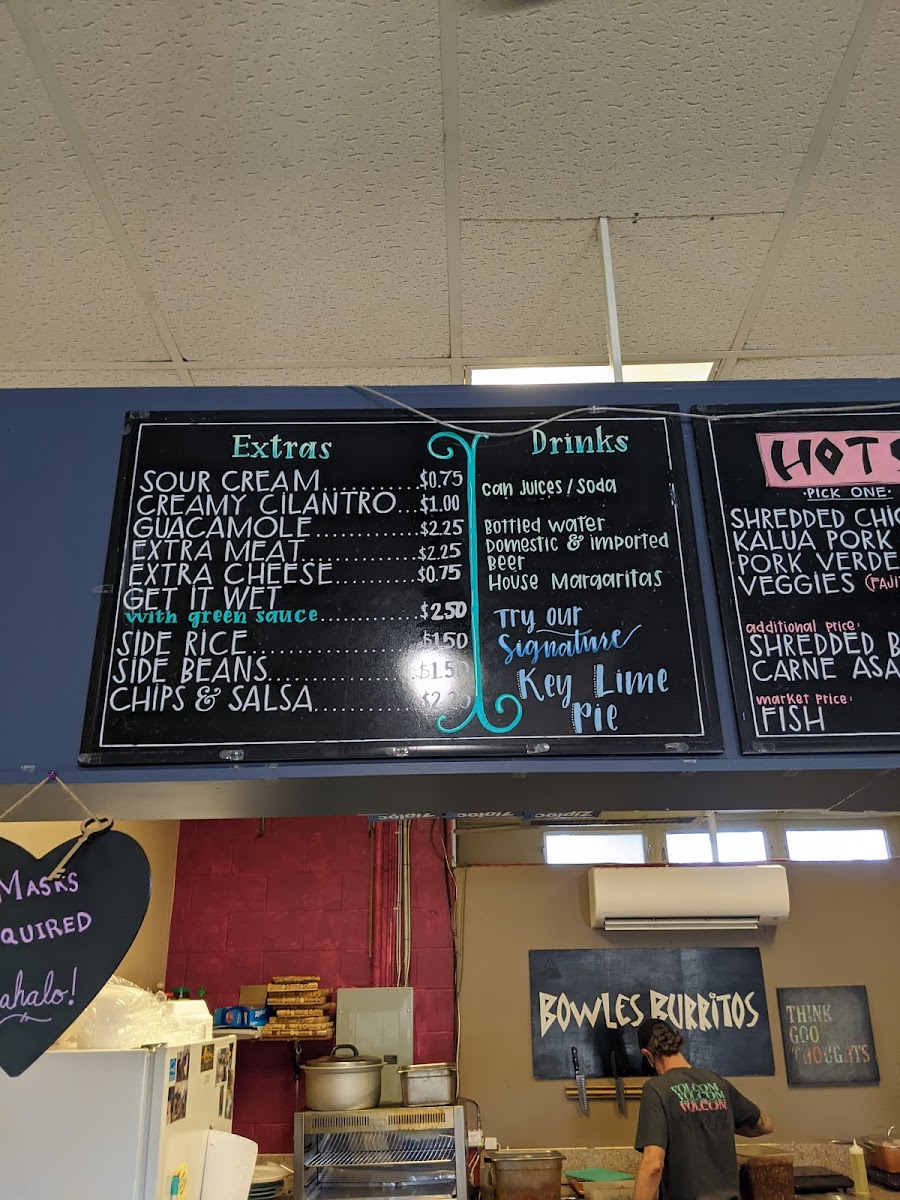 Extras
SOUR CREAM..........$0.75
CREAMY CILANTRO...$1.00
GUACAMOLE............$2.25
EXTRA MEAT............$2.25
EXTRA CHEESE.........$0.75
GET IT WET
with green sauce............$2.50
SIDE RICE................$1.50
SIDE BEANS...............
CHIPS & SALSA.............
Drinks
can juices / soda
Bottled water
Domestic & imported
Beer
House Margaritas
Try our
Signature
Key Lime
Pie
HOT
•PICK ONE•
SHREDDED
KALUA PORK
PORK VERDE
VEGGIES
additional price:
SHREDDED
CARNE
market price:
FISH
MASKS
Ziploc Ziploc Ziploc
BOWLES BURRITOS
THINK
GOO
THOUGHTS
VOLCOM
VOLCOM
VOLCOM